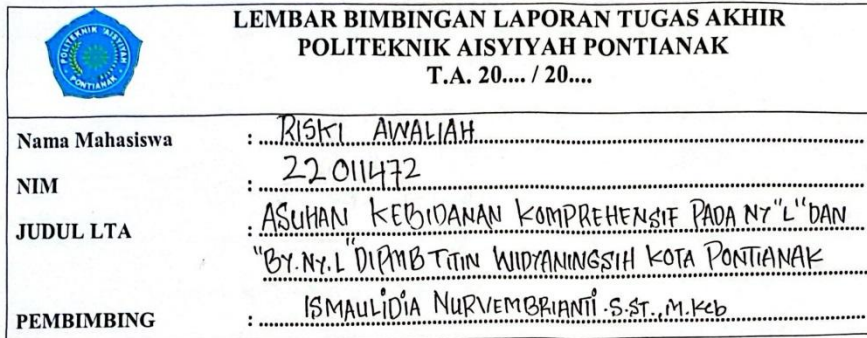 POLITEKNIK 'AISYIYAH
PONTIANAK
LEMBAR BIMBINGAN LAPORAN TUGAS AKHIR
POLITEKNIK AISYIYAH PONTIANAK
T.A. 20.... / 20....
Nama Mahasiswa : RISKI AWALIAH
NIM : 22011472
JUDUL LTA : ASUHAN KEBIDANAN KOMPREHENSIF PADA NY"L" DAN
"BY.NY.L" DI PMB TITIN WIDYANINGSIH KOTA PONTIANAK
PEMBIMBING : ISMAULIDIA NURVEMBRIANTI.S.ST.,M.Keb